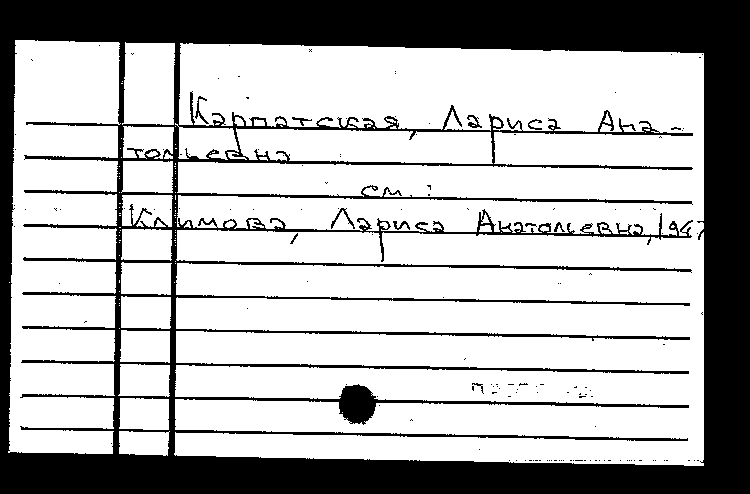 Карпатская, Лариса Ана-
тольевна
см.:
Климова, Лариса Анатольевна, 1947